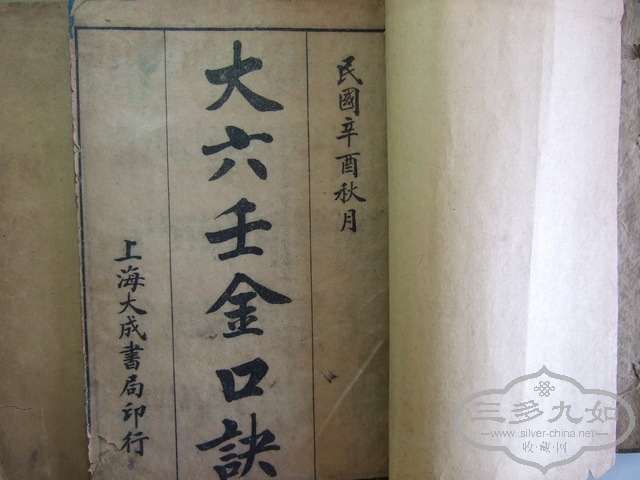 民國辛酉秋月
大六壬金口訣
上海大成書局印行
三多九如
www.silver-china.net
收·藏·网